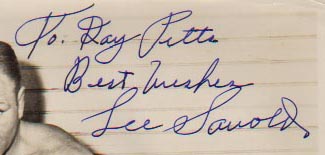 To. Ray Pitts
Best Wishes
Lee Savold.